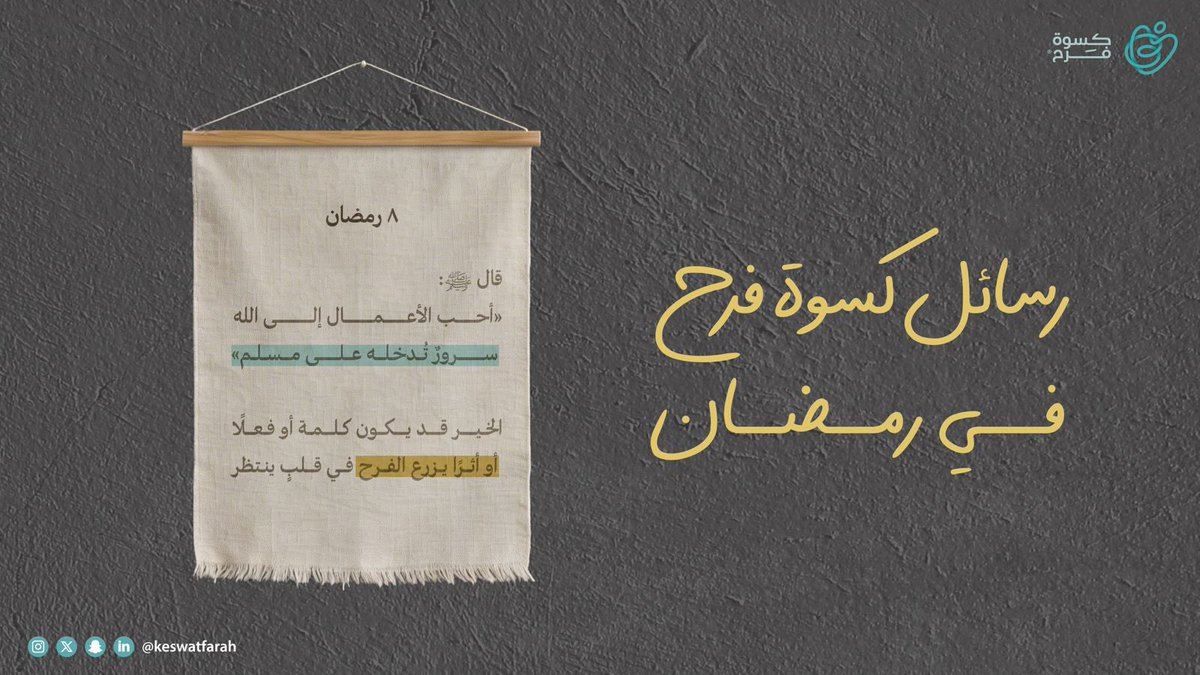 كسوة
فرح
رسائل كسوة فرح
في رمضان
٨ رمضان
قال ﷺ:
«أحب الأعمال إلى الله
سرورٌ تُدخله على مسلم»
الخير قد يكون كلمة أو فعلًا
أو أثرًا يزرع الفرح في قلبٍ ينتظر
@keswatfarah